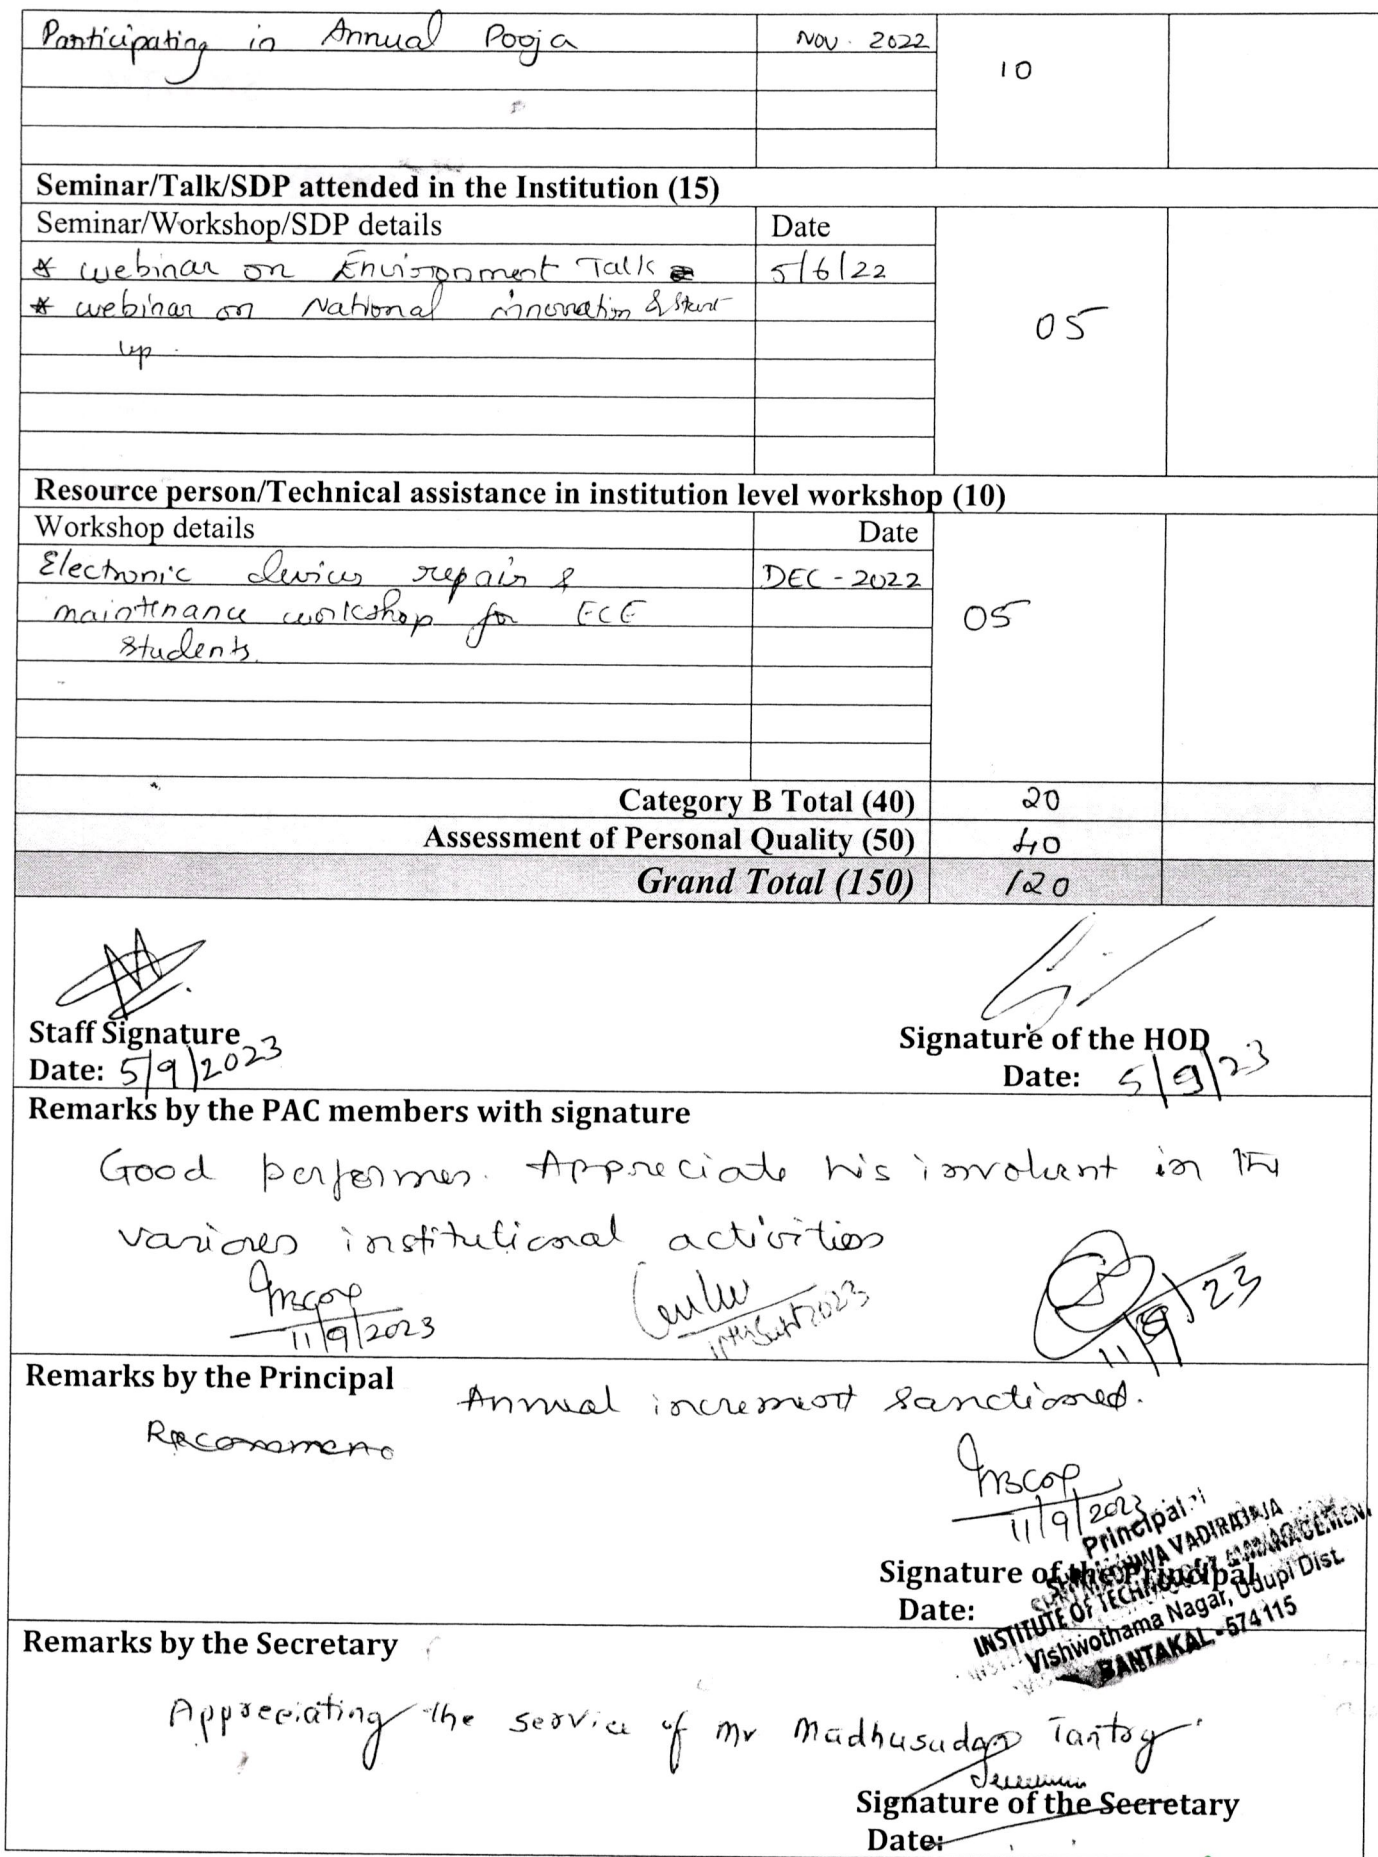 Participating in Annual Pooja Nov. 2022
10
Seminar/Talk/SDP attended in the Institution (15)
Seminar/Workshop/SDP details Date
* webinar on Environment Talk 5/6/22
* webinar on National innovation & Start
up.
05
Resource person/Technical assistance in institution level workshop (10)
Workshop details Date
Electronic devices repair & DEC - 2022
maintenance workshop for ECE
students.
05
Category B Total (40) 20
Assessment of Personal Quality (50) 40
Grand Total (150) 120
Staff Signature
Date: 5/9/2023
Signature of the HOD
Date: 5/9/23
Remarks by the PAC members with signature
Good performer. Appreciate his involvent in the
various institutional activities
11/9/2023
11th Sept 2023
11/9/23
Remarks by the Principal
Annual increment sanctioned.
Recommend
11/9/2023
Principal
SHRI MADHWA VADIRAJA
INSTITUTE OF TECHNOLOGY & MANAGEMENT
Vishwothama Nagar, Udupi Dist.
BANTAKAL - 574 115
Signature of the Principal
Date:
Remarks by the Secretary
Appreciating the service of Mr Madhusudan Tantry.
Signature of the Secretary
Date: